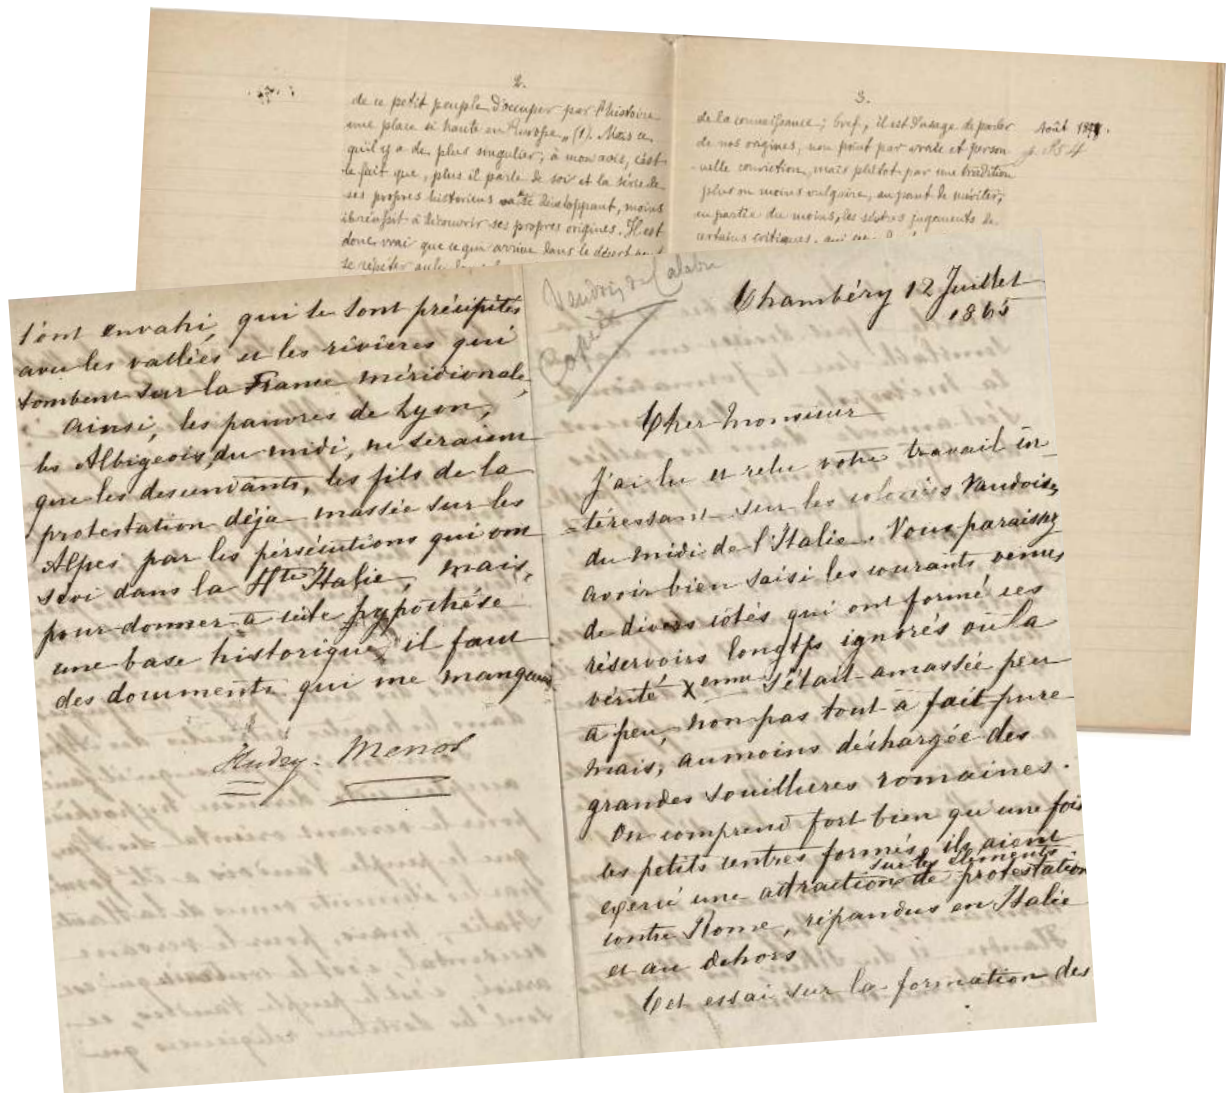 2.
de ce petit peuple d'occuper par l'histoire
une place si haute en Europe„ (1). Mais ce
qu'il y a de plus singulier, à mon avis, c'est
le fait que, plus il parle de soi et la série de
ses propres historiens va se développant, moins
il réussit à découvrir ses propres origines. Il est
donc vrai que ce qui arrive dans le désert peut
se répéter
3.
de la connaissance; bref, il est d'usage de parler
de nos origines, non point par vraie et person
-nelle conviction, mais plutôt par une tradition
plus ou moins vulgaire, au point de mériter,
en partie du moins, les jugements de
certains critiques, qui
Août
p. 854
l'ont envahi, qui se sont précipités
avec les vallées et les rivières qui
tombent sur la France méridionale,
ainsi, les pauvres de Lyon,
les Albigeois, du midi, ne seraient
que les descendants, les fils de la
protestation déjà massée sur les
Alpes par les persécutions qui ont
sévi dans la Hte Italie, mais,
pour donner à cette hypothése
une base historique, il faut
des documents qui me manquent
Hudry-Menos
Vaudois de Calabre
Copie
Chambéry 12 Juillet
1865
Cher Monsieur
J'ai lu et relu votre travail in-
-téressant sur les colonies Vaudoises
du midi de l'Italie. Vous paraissez
avoir bien saisi les courants venus
de divers côtés qui ont formé ces
réservoirs longtps ignorés où la
vérité Xenne s'était amassée peu
à peu, non pas tout à fait pure
mais, au moins déchargée des
grandes souillures romaines.
On comprend fort bien qu'une fois
les petits centres formés, ils aient
exercé une attraction sur les éléments de protestation
contre Rome, répandus en Italie
et au dehors
Cet essai sur la formation des